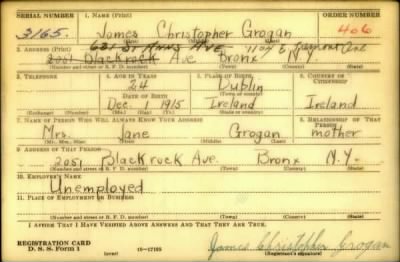 SERIAL NUMBER 1. NAME (Print) ORDER NUMBER
3165. James Christopher Grogan 406
(First) (Middle) (Last)
631 St Anns Ave 1104 E
2. ADDRESS (Print)
2051 Blackrock Ave Bronx N.Y.
(Number and street or R. F. D. number) (Town) (County) (State)
3. TELEPHONE 4. AGE IN YEARS 5. PLACE OF BIRTH 6. COUNTRY OF CITIZENSHIP
24 Dublin
DATE OF BIRTH (Town or county)
Dec. 1 1915 Ireland Ireland
(Exchange) (Number) (Mo.) (Day) (Yr.) (State or country)
7. NAME OF PERSON WHO WILL ALWAYS KNOW YOUR ADDRESS 8. RELATIONSHIP OF THAT PERSON
Mrs. Jane Grogan mother
(Mr., Mrs., Miss) (First) (Middle) (Last)
9. ADDRESS OF THAT PERSON
2051 Blackrock Ave. Bronx N.Y.
(Number and street or R. F. D. number) (Town) (County) (State)
10. EMPLOYER'S NAME
Unemployed
11. PLACE OF EMPLOYMENT OR BUSINESS
(Number and street or R. F. D. number) (Town) (County) (State)
I AFFIRM THAT I HAVE VERIFIED ABOVE ANSWERS AND THAT THEY ARE TRUE.
REGISTRATION CARD
D. S. S. Form 1 (over) 16—17105 James Christopher Grogan
(Registrant's signature)